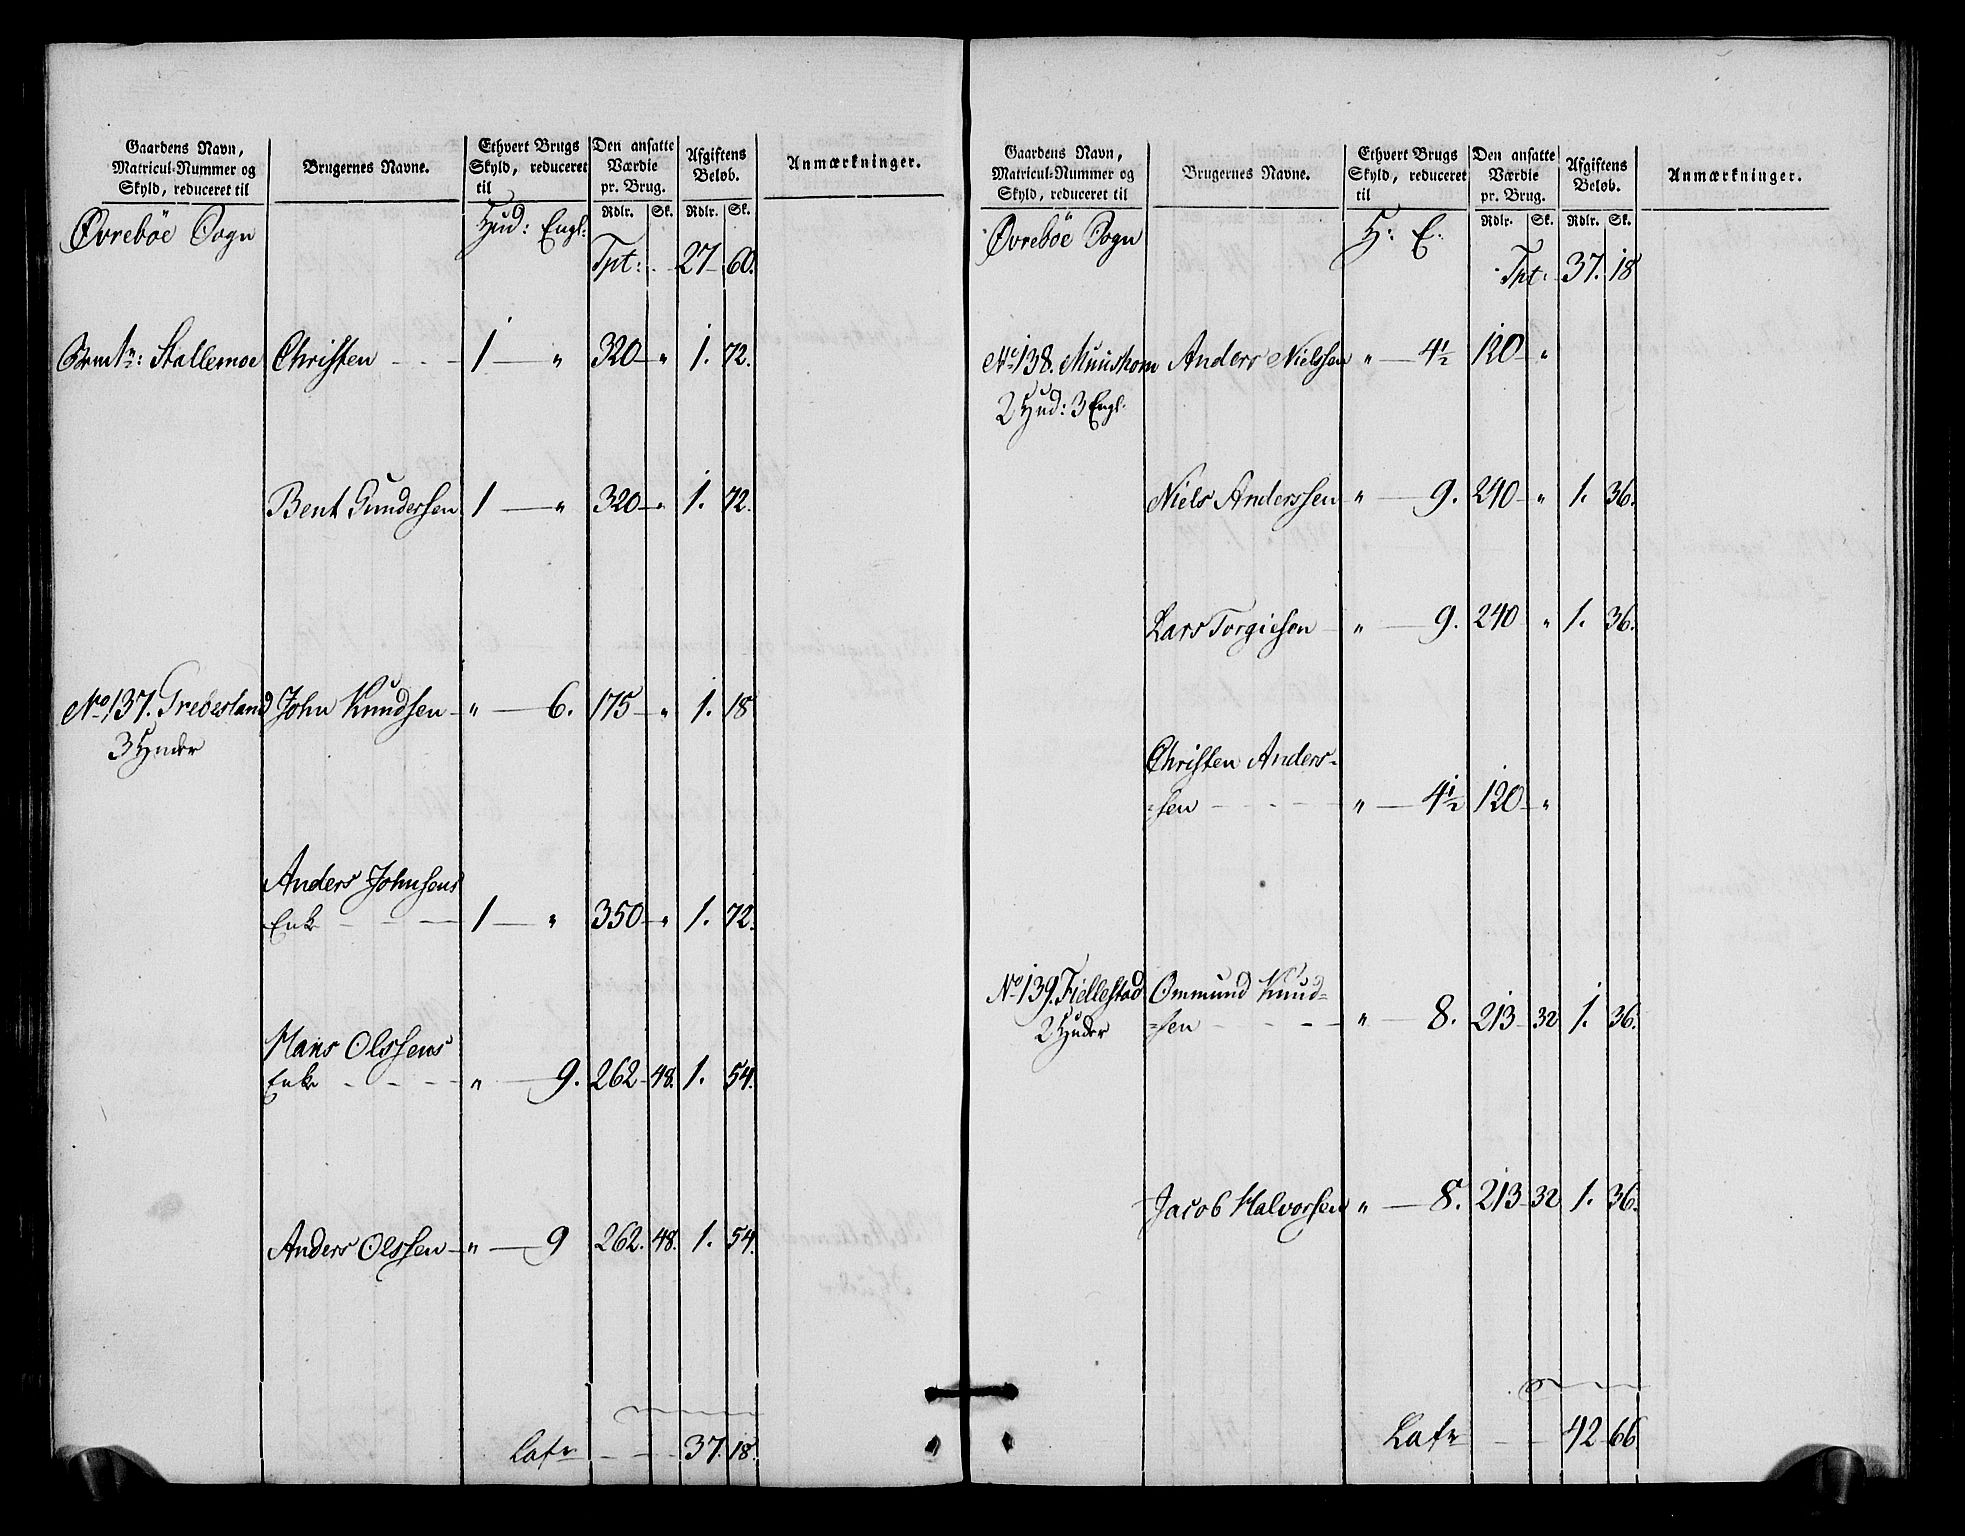 Gaardens Navn,
Matricul-Nummer og
Skyld, reduceret til
Brugernes Navne.
Ethvert Brugs
Skyld, reduceret
til
Den ansatte
Værdie
pr. Brug.
Rdlr. Sk.
Afgiftens
Beløb.
Rdlr. Sk.
Anmærkninger.
Øvrebøe Sogn Hud: Engl:
Tpt: 27 60.
Stallemoe Christen 1 " 320 " 1. 72.
Bent Gundersen 1 " 320 " 1. 72.
No 137. Grebesland John Knudsen " 6. 175 " 1. 18
3 Huder
Anders Johnsens
Enke 1 " 350 " 1. 72.
Hans Olssens
Enke " 9. 262 48. 1. 54.
Anders Olssen " 9 262. 48. 1. 54.
Lats 37. 18.
Gaardens Navn,
Matricul-Nummer og
Skyld, reduceret til
Brugernes Navne.
Ethvert Brugs
Skyld, reduceret
til
Den ansatte
Værdie
pr. Brug.
Rdlr. Sk.
Afgiftens
Beløb.
Rdlr. Sk.
Anmærkninger.
Øvrebøe Sogn H: E.
Tpt: 37. 18
No 138. Anders Nielssen " 4½ 120 "
2 Hud: 3 Engl.
Niels Anderssen " 9. 240 " 1. 36.
Lars Torgiesen " 9. 240 " 1. 36.
Christen Anders-
=sen " 4½ 120 "
No 139. Fiellestad Ommund Knud=
2 Huder =sen " 8. 213 32 1. 36.
Jacob Halvorsen " 8. 213 32 1. 36.
Lats 42 66